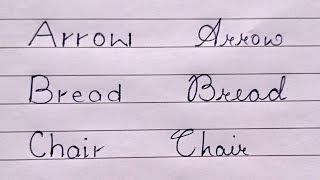 Arrow Arrow
Bread Bread
Chair Chair